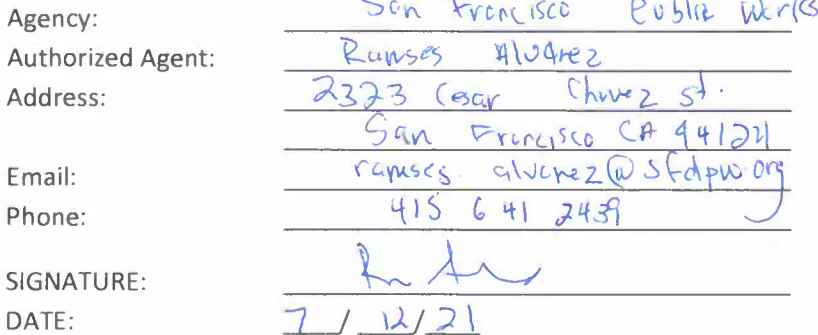 Agency: San Francisco Public Works
Authorized Agent: Ramses Alvarez
Address: 2323 Cesar Chavez st.
San Francisco CA 94124
Email: ramses.alvarez@sfdpw.org
Phone: 415 641 2439
SIGNATURE:
DATE: 7 / 12 / 21